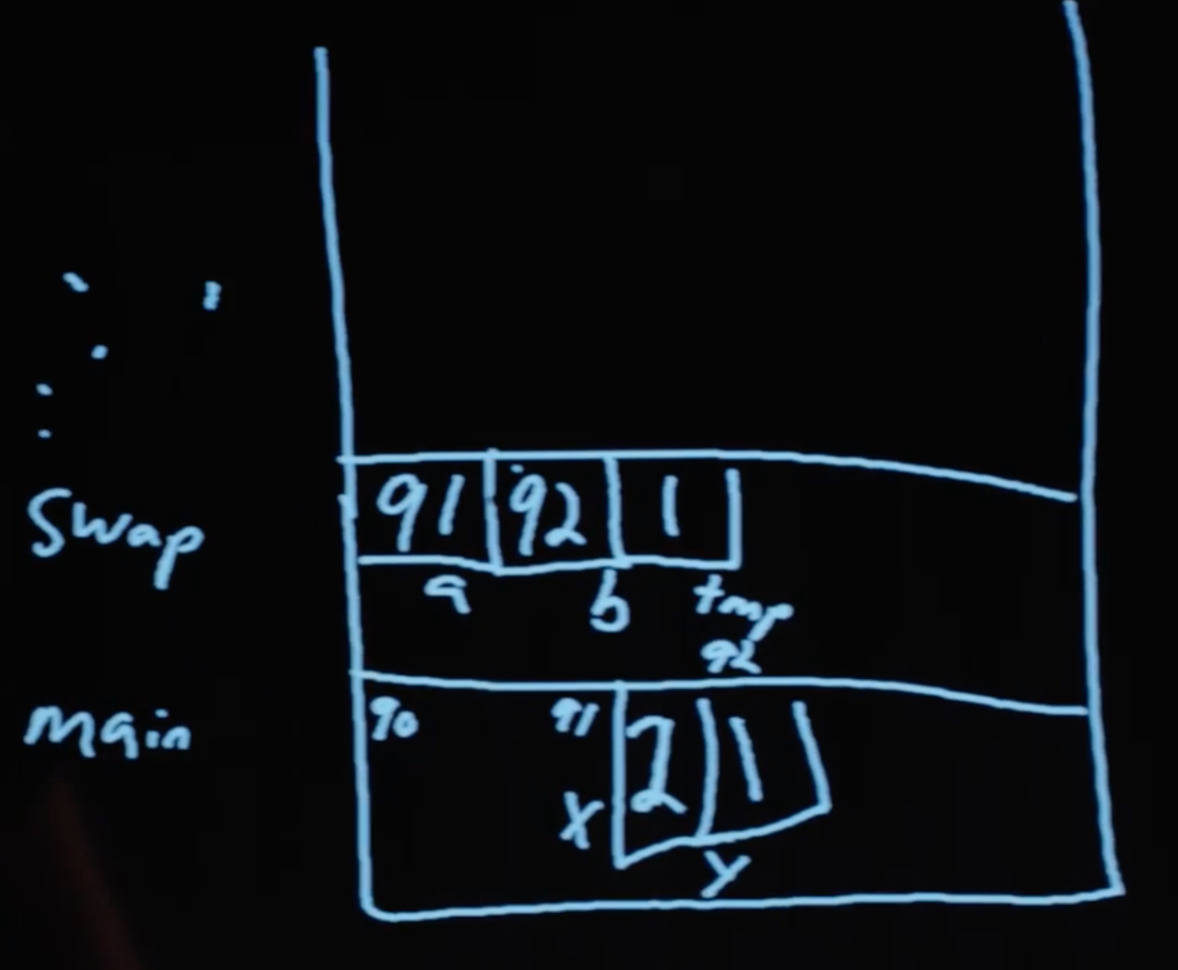 Swap
91 92 1
a b tmp
92
main
90 91 2 1
x
y